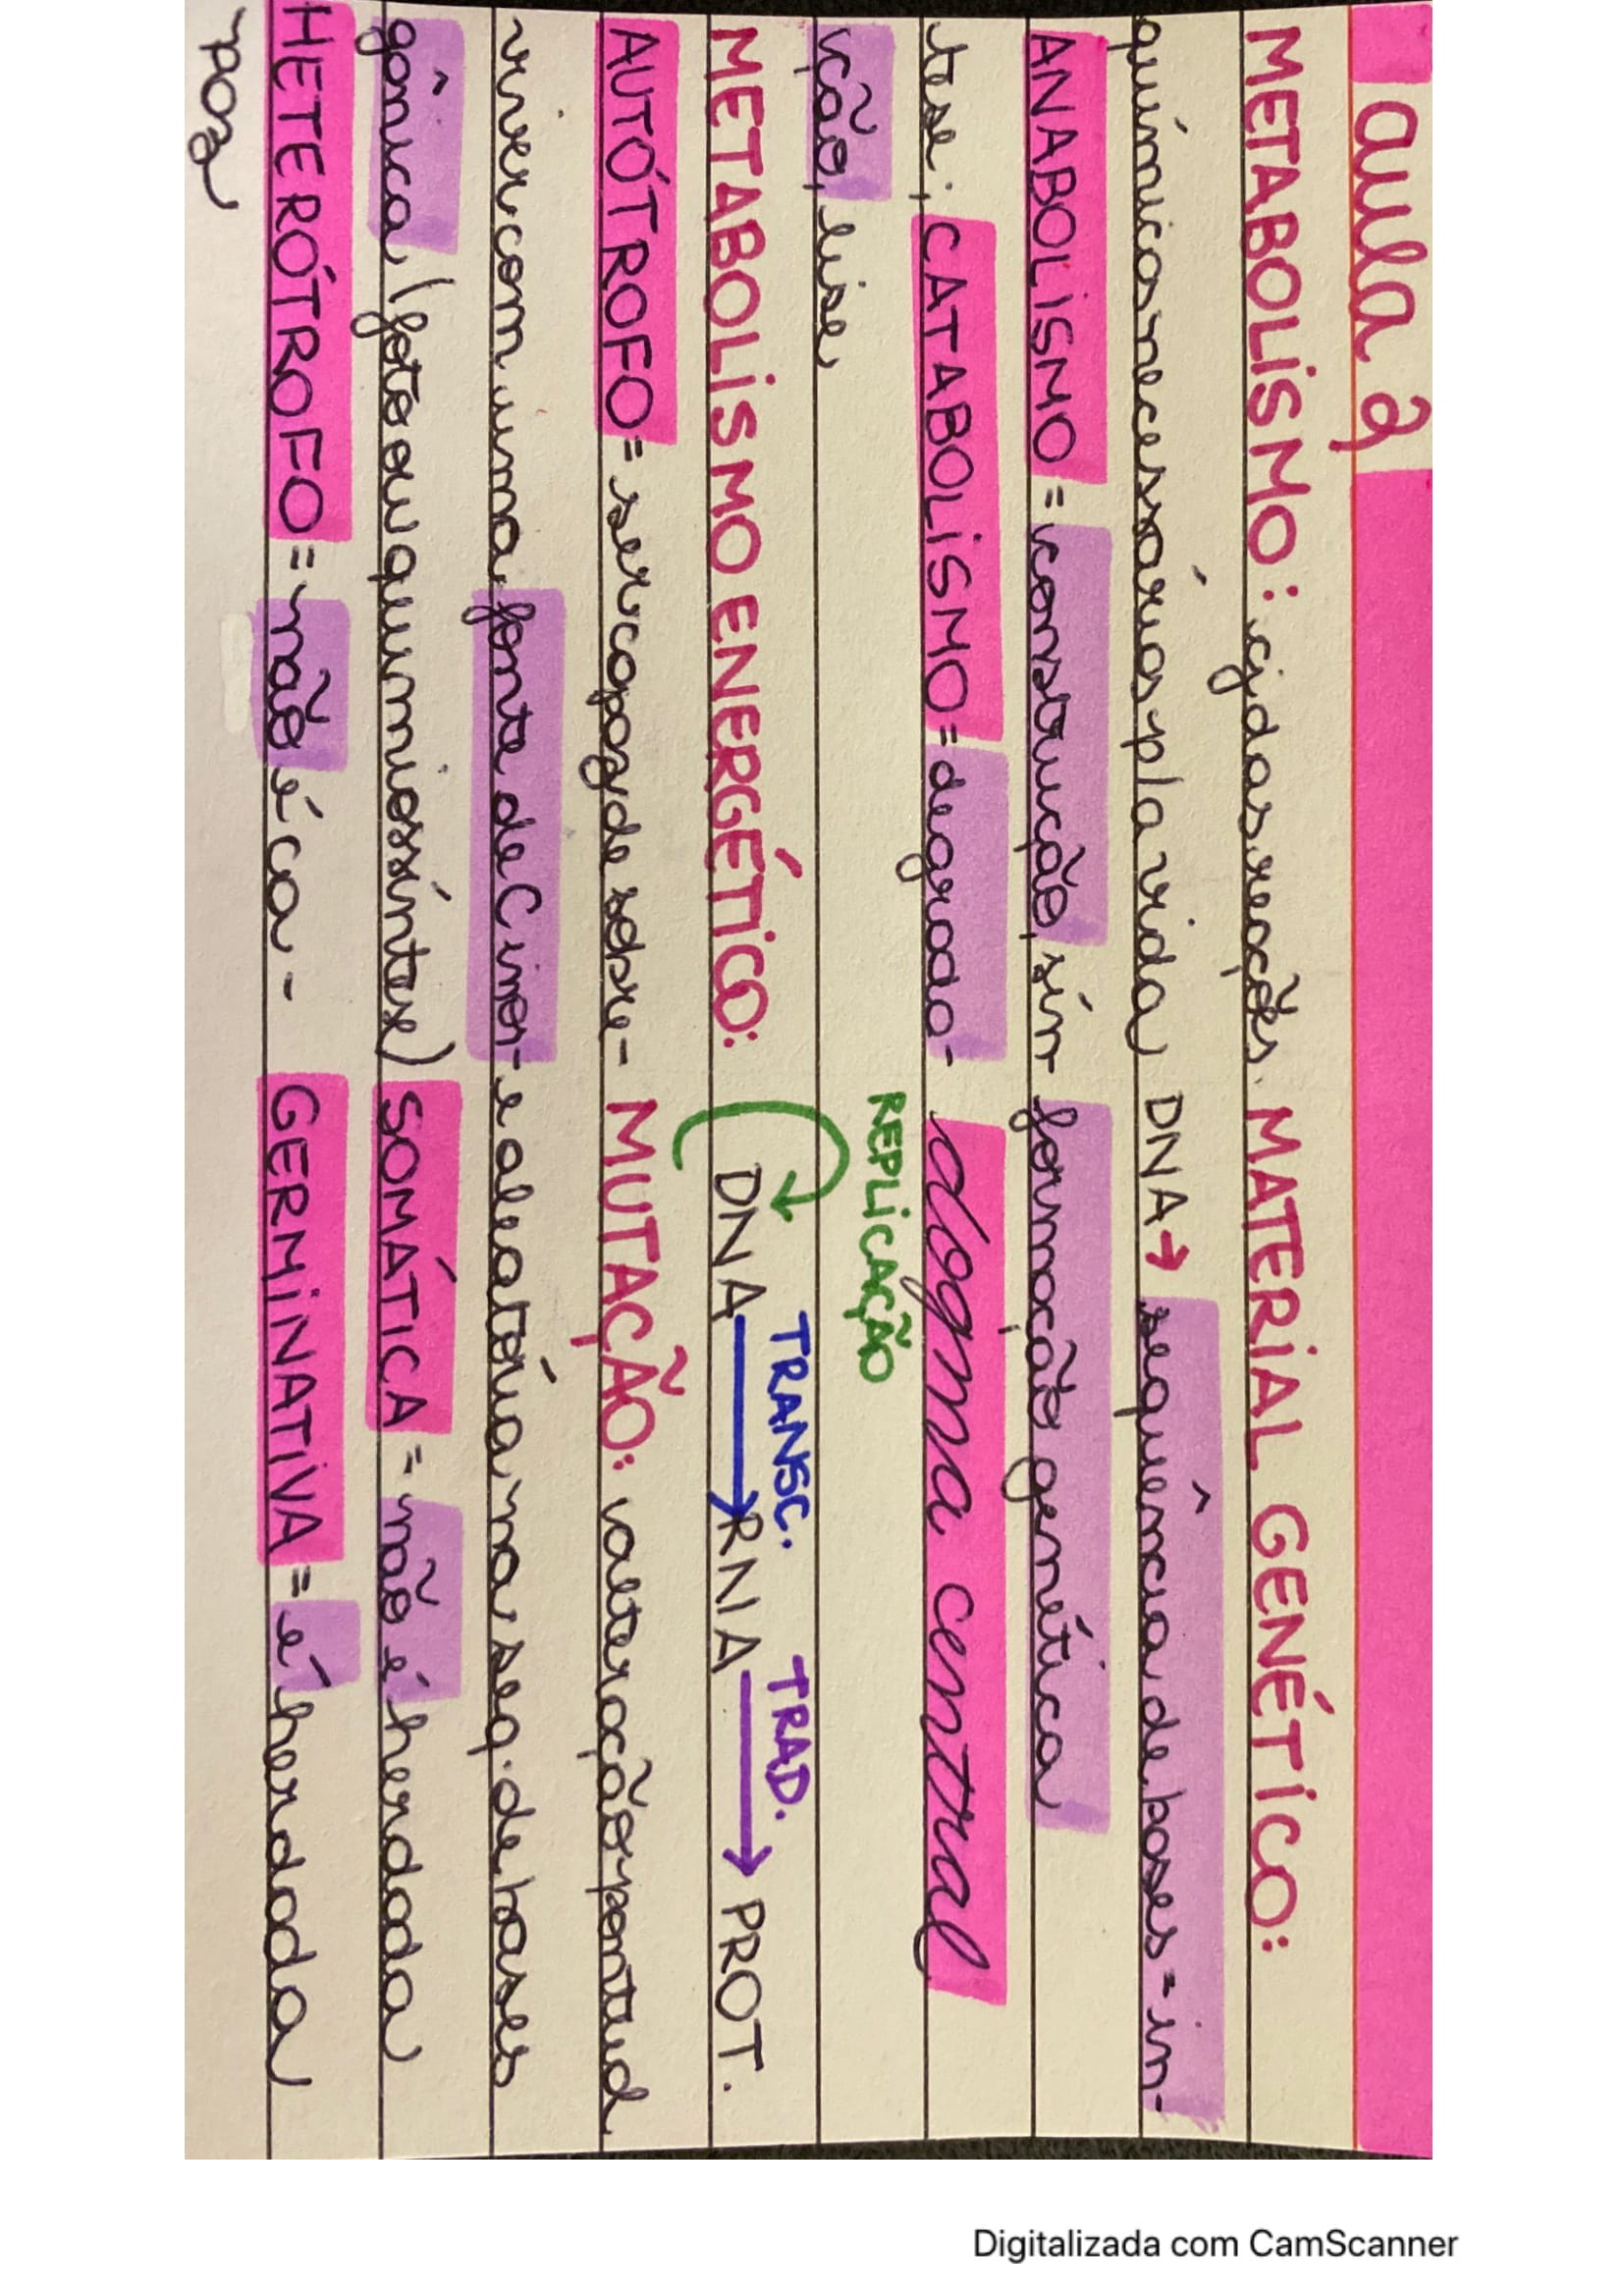 aula 2
METABOLISMO: cjdasreações
químicasnecessáriasp/avida
ANABOLISMO = construção, sín-
tese; CATABOLISMO = degrada-
ção, lise
METABOLISMO ENERGÉTICO:
AUTÓTROFO = ser capaz de sobre-
viver com uma fonte de C inor-
gânica (foto ou quimiossíntese)
HETERÓTROFO = não é ca-
paz
MATERIAL GENÉTICO:
DNA → sequência de bases = in-
formação genética
dogma central
REPLICAÇÃO
TRANSC. TRAD.
DNA → RNA → PROT.
MUTAÇÃO: alteração repentina
e aleatória na seq. de bases
SOMÁTICA = não é herdada
GERMINATIVA = é herdada
Digitalizada com CamScanner